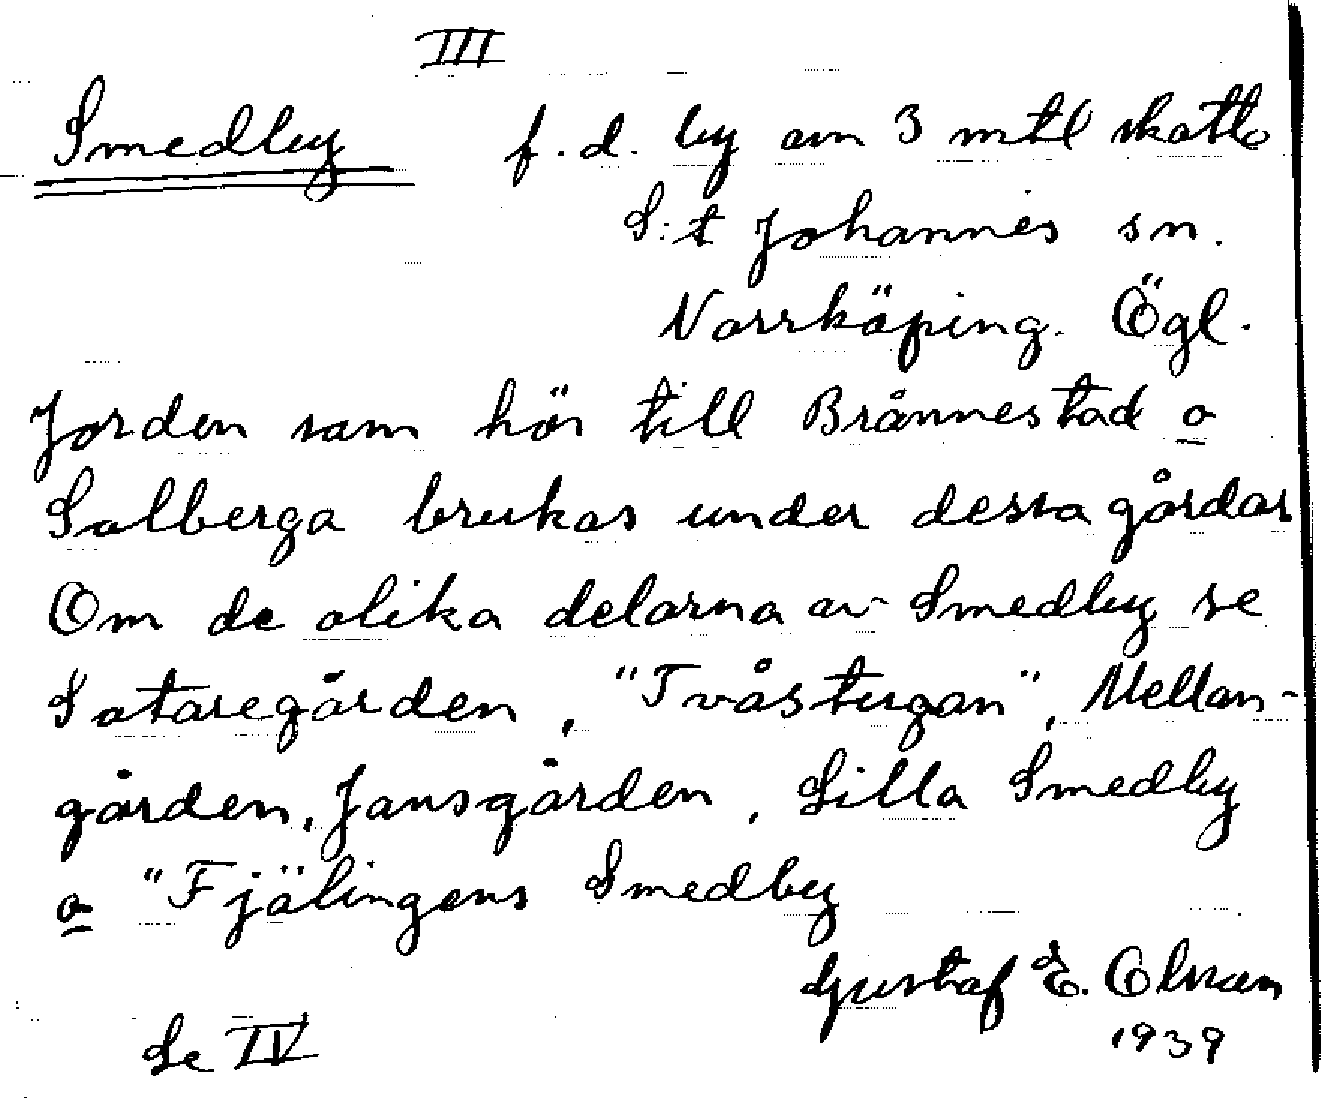 III
Smedby f.d. by om 3 mtl skatte
S:t Johannes sn.
Norrköping. Ögl.
Jorden som hör till Brånnestad o
Solberga brukas under dessa gårdar
Om de olika delarna av Smedby se
Sotaregården, "Tvåstugan", Mellan-
gården, Jonsgården, Lilla Smedby
o "Fjälingens Smedby
Gustaf E. Olsson
1939
Se IV